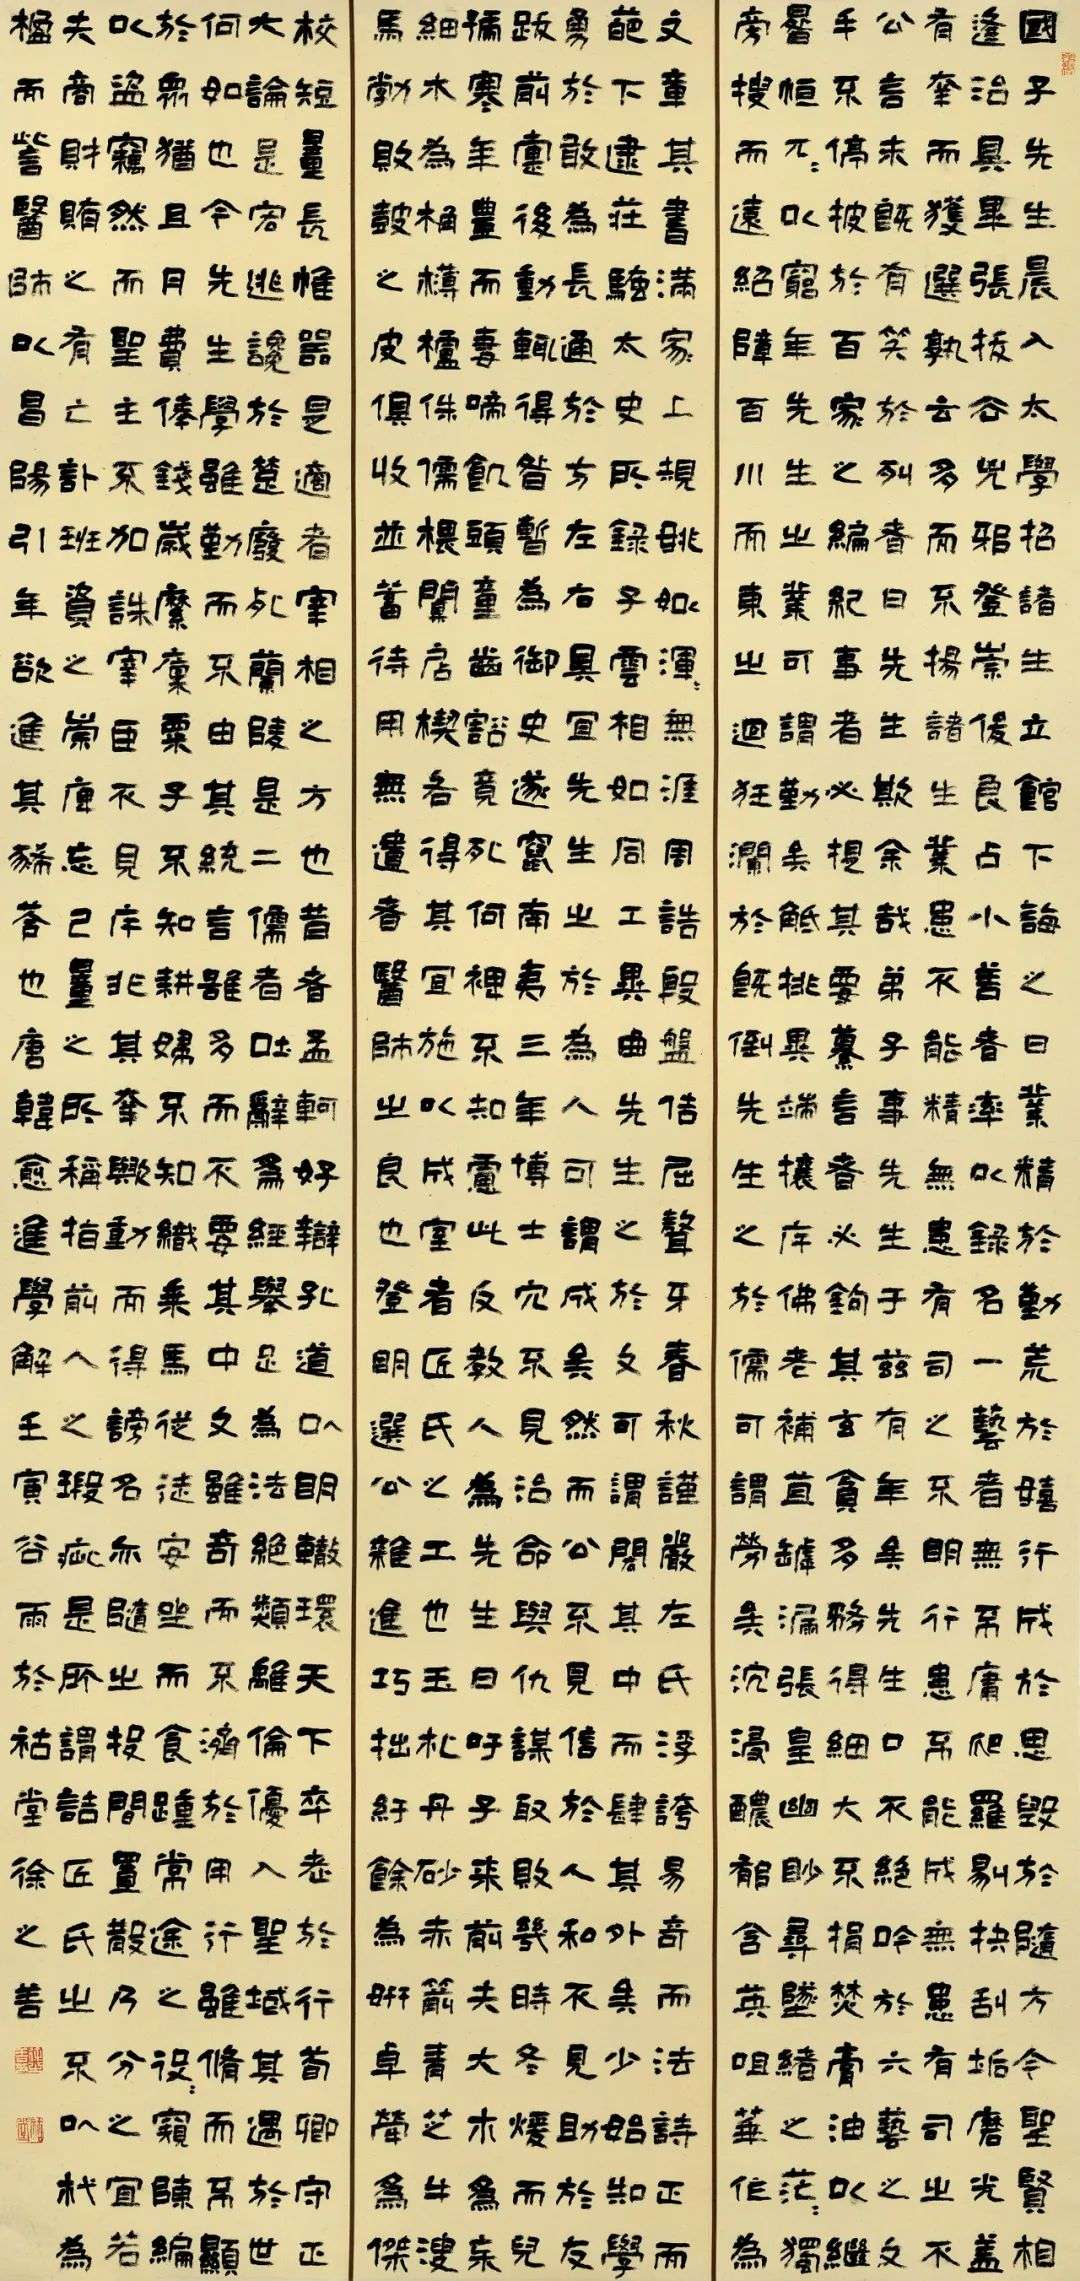 國子先生晨入太學招諸生立館下誨之曰業精於勤荒於嬉行成於思毀於隨方今聖賢相
逢治具畢張拔去兇邪登崇俊良占小善者率以錄名一藝者無不庸爬羅剔抉刮垢磨光盖
有幸而獲選孰云多而不揚諸生業患不能精無患有司之不明行患不能成無患有司之不
公言未既有笑於列者曰先生欺余哉弟子事先生于茲有年矣先生口不絕吟於六藝之文
手不停披於百家之編紀事者必提其要纂言者必鉤其玄貪多務得細大不捐焚膏油以繼
晷恒兀〻以窮年先生之業可謂勤矣觝排異端攘斥佛老補苴罅漏張皇幽眇尋墜緒之茫〻獨
旁搜而遠紹障百川而東之迴狂瀾於既倒先生之於儒可謂勞矣沉浸醲郁含英咀華作為
文章其書滿家上規姚姒渾〻無涯周誥殷盤佶屈聱牙春秋謹嚴左氏浮誇易奇而法詩正而
葩下逮莊騷太史所錄子雲相如同工異曲先生之於文可謂閎其中而肆其外矣少始知學
勇於敢為長通於方左右具宜先生之於為人可謂成矣然而公不見信於人私不見助於友
跋前躓後動輒得咎暫為御史遂竄南夷三年博士冗不見治命與仇謀取敗幾時冬煖而兒
號寒年豐而妻啼飢頭童齒豁竟死何裨不知慮此反教人為先生曰吁子來前夫大木為杗
細木為桷欂櫨侏儒椳闑扂楔各得其宜施以成室者匠氏之工也玉札丹砂赤箭青芝牛溲
馬勃敗鼓之皮俱收並蓄待用無遺者醫師之良也登明選公雜進巧拙紆餘為妍卓犖為傑
校短量長惟器是適者宰相之方也昔者孟軻好辯孔道以明轍環天下卒老於行荀卿守正
大論是宏逃讒於楚廢死蘭陵是二儒者吐辭為經舉足為法絕類離倫優入聖域其遇於世
何如也今先生學雖勤而不由其統言雖多而不要其中文雖奇而不濟於用行雖脩而不顯
於眾猶且月費俸錢歲縻廩粟子不知耕婦不知織乘馬從徒安坐而食踵常途之役〻窺陳編
以盜竊然而聖主不加誅宰臣不見斥非其幸歟動而得謗名亦隨之投閒置散乃分之宜若
夫商財賄之有亡計班資之崇庳忘己量之所稱指前人之瑕疵是所謂詰匠氏之不以杙為
楹而訾醫師以昌陽引年欲進其豨苓也唐韓愈進學解壬寅谷雨於祜堂徐之善